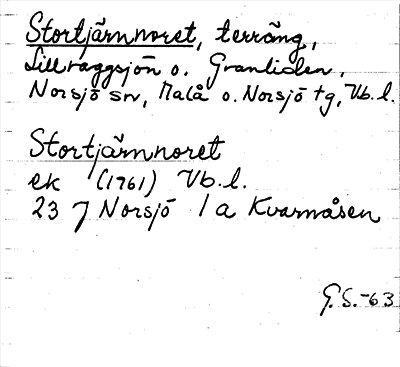 Stortjärnnoret, terräng,
Lillraggsjön o. Granliden,
Norsjö sn, Malå o. Norsjö tg, Vb. l.
Stortjärnnoret
ek (1961) Vb. l.
23 J Norsjö 1 a Kvarnåsen
G. S. -63